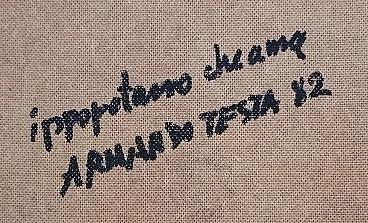 ippopotamo che ama
ARMANDO TESTA 82